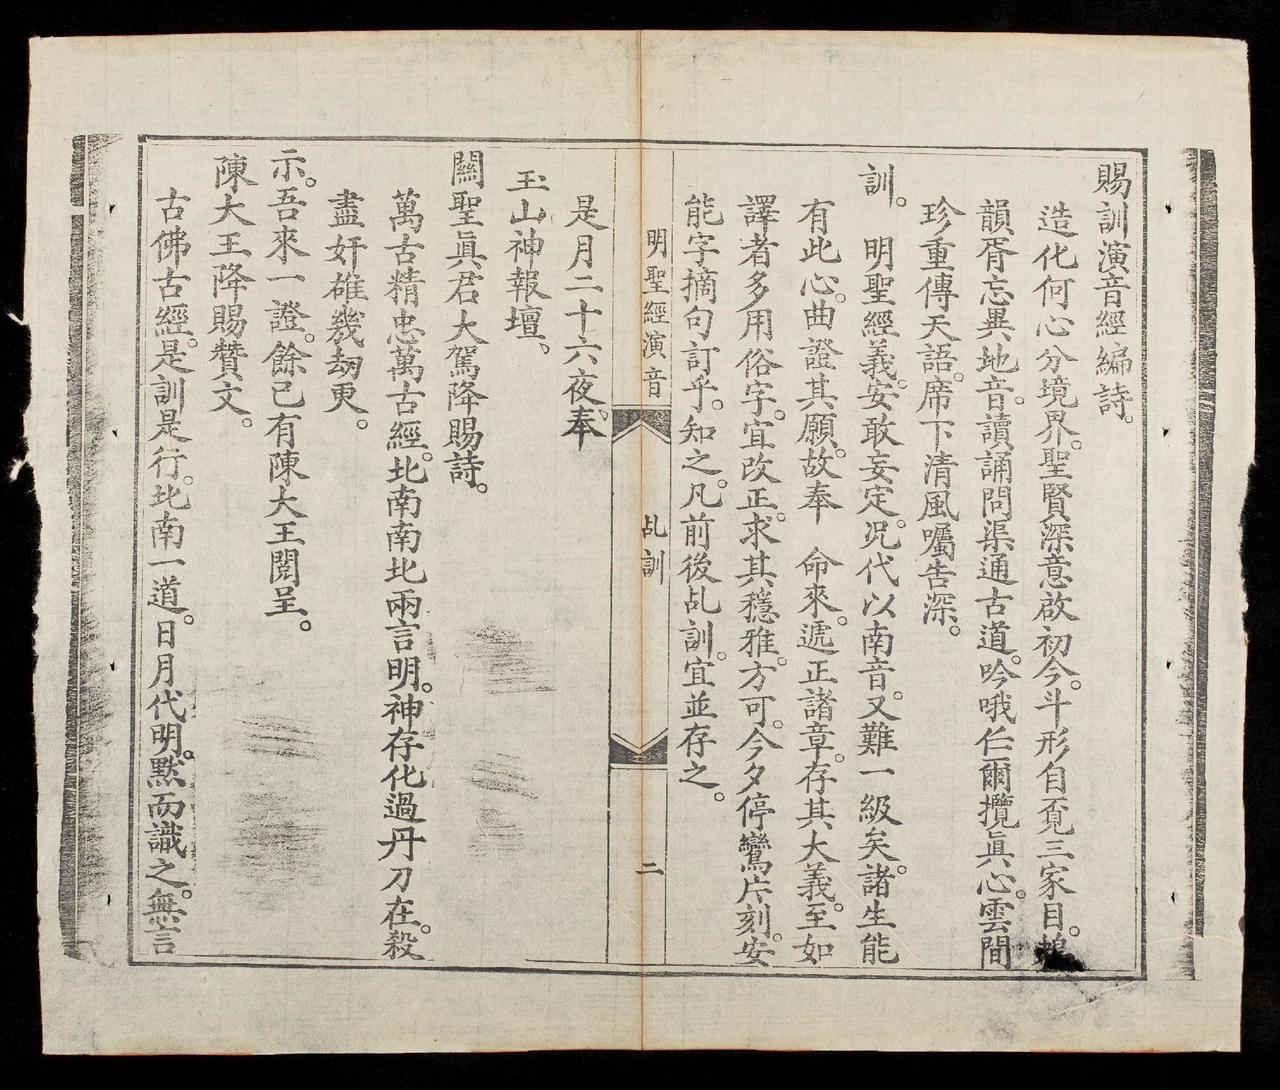 賜訓演音經編詩。
造化何心分境界。聖賢深意啟初今。斗形自覔三家目。
韻胥忘異地音。讀誦問渠通古道。吟哦仨爾攬眞心。雲間
珍重傳天語。席下清風囑告深。
訓。 明聖經義。安敢妄定。況代以南音。又難一級矣。諸生能
有此心。曲證其願。故奉 命來。遞正諸章。存其大義。至如
譯者多用俗字。宜改正。求其穩雅。方可。今夕停鸞片刻。安
能字摘句訂乎。知之。凡前後乩訓。宜並存之。
明聖經演音 乩訓 二
是月二十六夜奉
玉山神報壇、
關聖眞君大駕降賜詩。
萬古精忠萬古經。北南南北兩言明。神存化過丹刀在。殺
盡奸雄幾劫更。
示。吾來一證。餘已有陳大王閱呈。
陳大王降賜贊文。
古佛古經。是訓是行。北南一道。日月代明。默而識之。無言